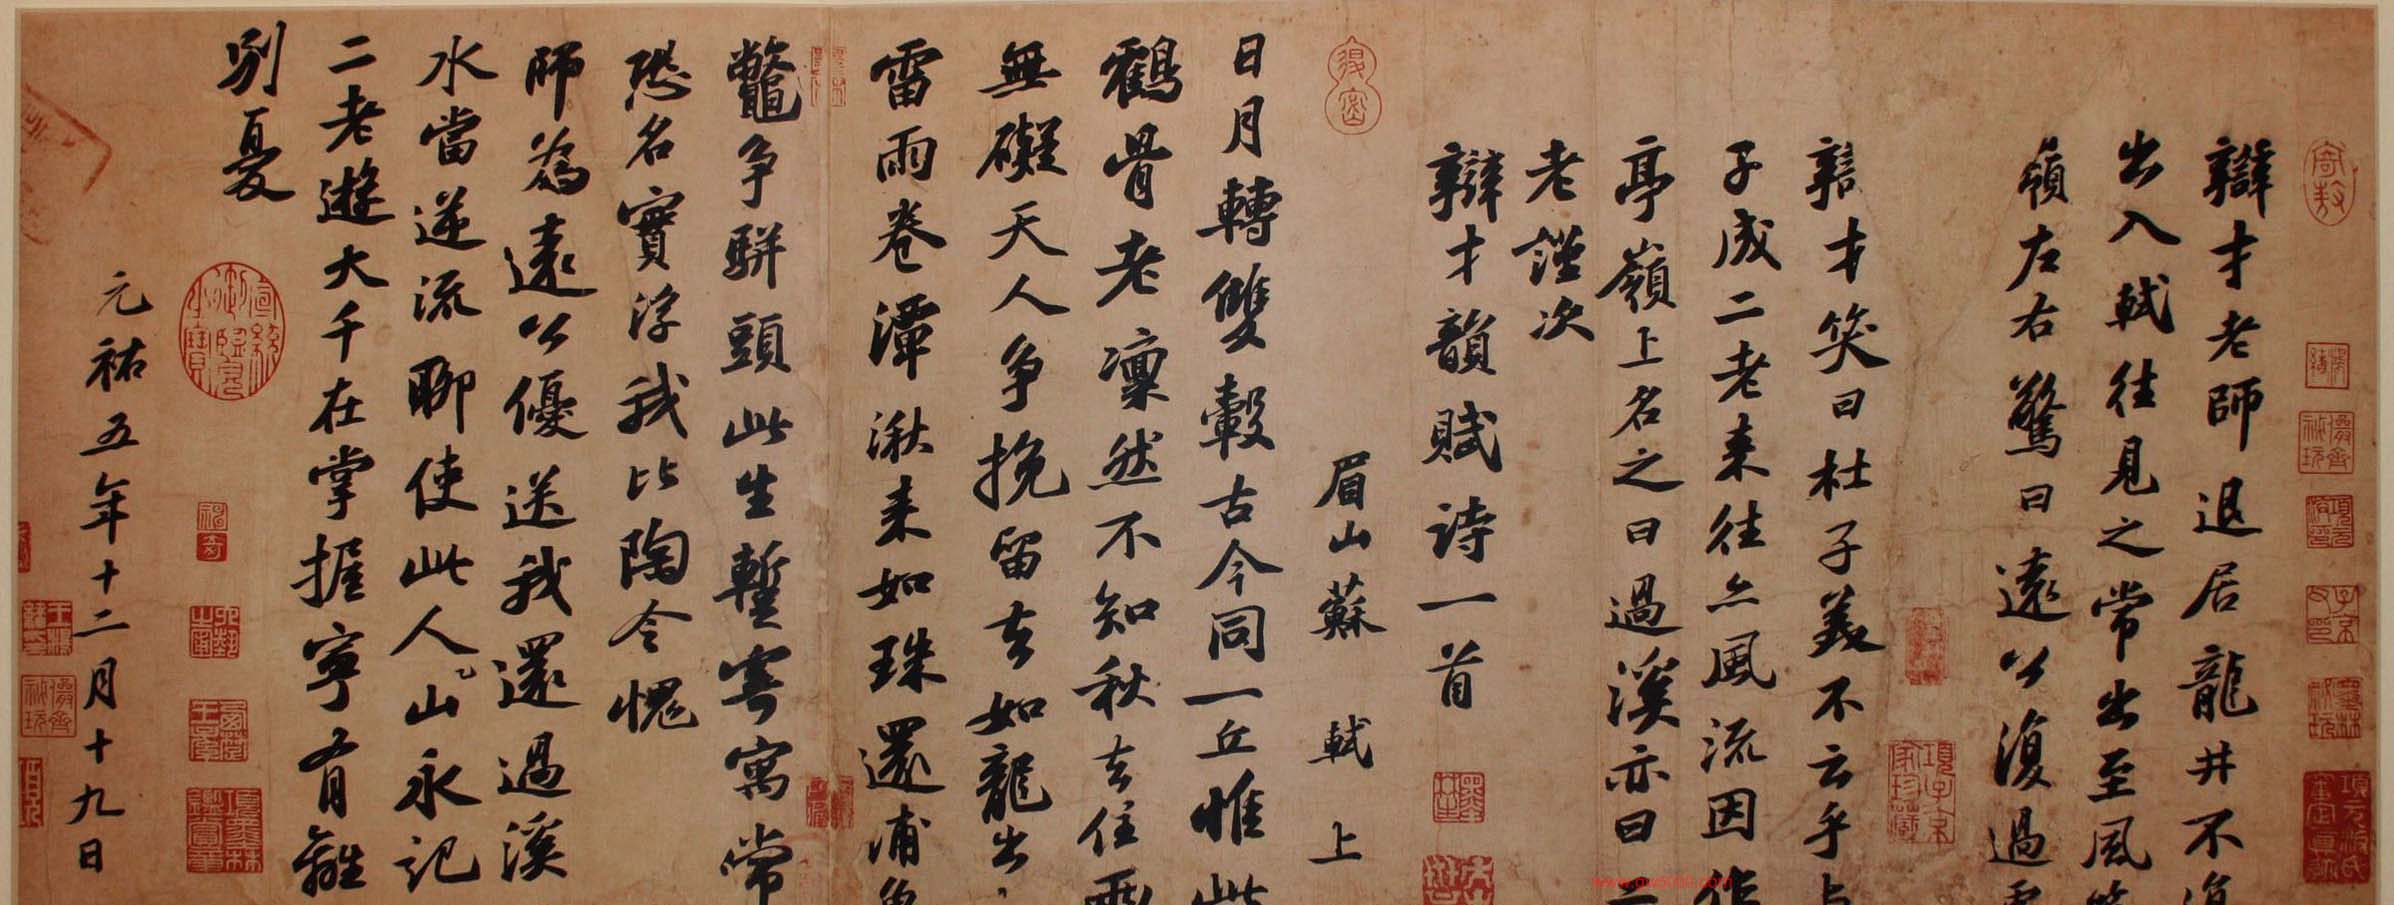 辯才老師退居龍井不復
出入軾往見之常出至風篁
嶺左右驚曰遠公復過虎
辯才笑曰杜子美不云乎與
子成二老來往亦風流因作
亭嶺上名之曰過溪亦曰二
老謹次
辯才韻賦詩一首
眉山蘇軾上
日月轉雙轂古今同一丘惟此
鶴骨老凛然不知秋去住兩
無礙天人爭挽留去如龍出
雷雨卷潭湫來如珠還浦魚
鼈爭駢頭此生暫寄寓常
恐名實浮我比陶令愧
師為遠公優送我還過溪
水當逆流聊使此人山永記
二老遊大千在掌握寧有離
別憂
元祐五年十二月十九日